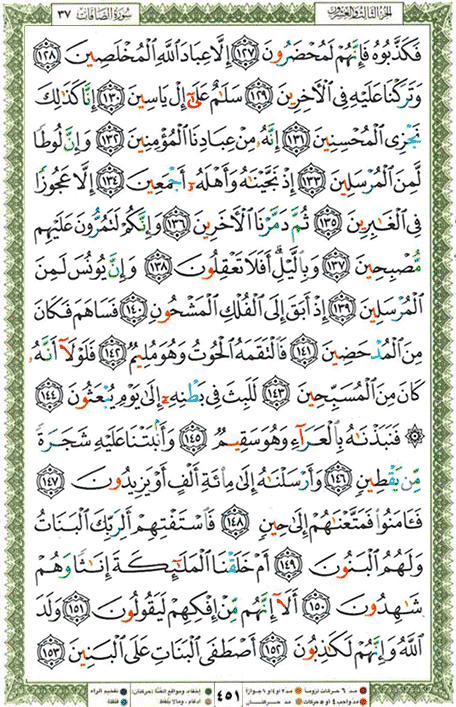 سُورَةُ الصَّافَّات ٣٧
الجزء الثالث والعشرون
فَكَذَّبُوهُ فَإِنَّهُمْ لَمُحْضَرُونَ ١٢٧ إِلَّا عِبَادَ اللَّهِ الْمُخْلَصِينَ ١٢٨
وَتَرَكْنَا عَلَيْهِ فِي الْآخِرِينَ ١٢٩ سَلَامٌ عَلَىٰ إِلْ يَاسِينَ ١٣٠ إِنَّا كَذَٰلِكَ
نَجْزِي الْمُحْسِنِينَ ١٣١ إِنَّهُ مِنْ عِبَادِنَا الْمُؤْمِنِينَ ١٣٢ وَإِنَّ لُوطًا
لَّمِنَ الْمُرْسَلِينَ ١٣٣ إِذْ نَجَّيْنَاهُ وَأَهْلَهُ أَجْمَعِينَ ١٣٤ إِلَّا عَجُوزًا
فِي الْغَابِرِينَ ١٣٥ ثُمَّ دَمَّرْنَا الْآخَرِينَ ١٣٦ وَإِنَّكُمْ لَتَمُرُّونَ عَلَيْهِم
مُّصْبِحِينَ ١٣٧ وَبِاللَّيْلِ ۗ أَفَلَا تَعْقِلُونَ ١٣٨ وَإِنَّ يُونُسَ لَمِنَ
الْمُرْسَلِينَ ١٣٩ إِذْ أَبَقَ إِلَى الْفُلْكِ الْمَشْحُونِ ١٤٠ فَسَاهَمَ فَكَانَ
مِنَ الْمُدْحَضِينَ ١٤١ فَالْتَقَمَهُ الْحُوتُ وَهُوَ مُلِيمٌ ١٤٢ فَلَوْلَا أَنَّهُ
كَانَ مِنَ الْمُسَبِّحِينَ ١٤٣ لَلَبِثَ فِي بَطْنِهِ إِلَىٰ يَوْمِ يُبْعَثُونَ ١٤٤
۞ فَنَبَذْنَاهُ بِالْعَرَاءِ وَهُوَ سَقِيمٌ ١٤٥ وَأَنبَتْنَا عَلَيْهِ شَجَرَةً
مِّن يَقْطِينٍ ١٤٦ وَأَرْسَلْنَاهُ إِلَىٰ مِائَةِ أَلْفٍ أَوْ يَزِيدُونَ ١٤٧
فَآمَنُوا فَمَتَّعْنَاهُمْ إِلَىٰ حِينٍ ١٤٨ فَاسْتَفْتِهِمْ أَلِرَبِّكَ الْبَنَاتُ
وَلَهُمُ الْبَنُونَ ١٤٩ أَمْ خَلَقْنَا الْمَلَائِكَةَ إِنَاثًا وَهُمْ
شَاهِدُونَ ١٥٠ أَلَا إِنَّهُم مِّنْ إِفْكِهِمْ لَيَقُولُونَ ١٥١ وَلَدَ
اللَّهُ وَإِنَّهُمْ لَكَاذِبُونَ ١٥٢ أَصْطَفَى الْبَنَاتِ عَلَى الْبَنِينَ ١٥٣
مد ٦ حركات لزوماً مد ٢ أو ٤ أو ٦ جوازاً إخفاء، ومواقع الغنّة (حركتان) تفخيم الراء
مد واجب ٤ أو ٥ حركات مد حركتان إدغام، وما لا يُلفظ قلقلة
٤٥١